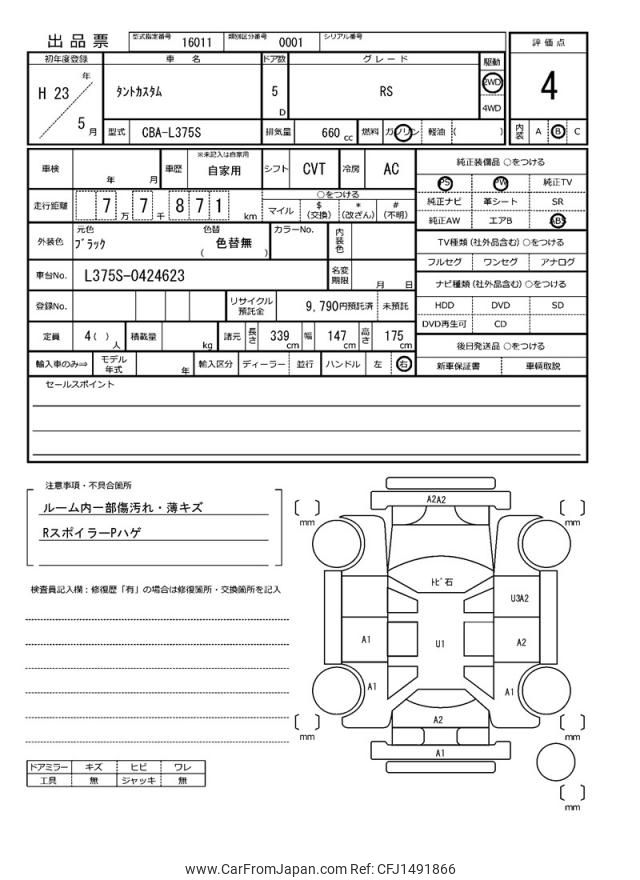 出品票
型式指定番号 16011 類別区分番号 0001 シリアル番号
評価点
4
初年度登録 車 名 ドア数 グレード 駆動
H 23 年 5 月
タントカスタム
5 D
RS
2WD
4WD
型式 CBA-L375S 排気量 660 cc 燃料 ガソリン 軽油 ( )
内装 A B C
車検 年 月 車歴 ※未記入は自家用 自家用 シフト CVT 冷房 AC
走行距離 7 万 7 千 8 7 1 km
○をつける
マイル $ (交換) * (改ざん) # (不明)
外装色 元色 ブラック 色替 ( 色替無 ) カラーNo. 内装色
車台No. L375S-0424623 名変期限 月 日
登録No. リサイクル預託金 9,790円預託済 未預託
定員 4 ( ) 人 積載量 kg 諸元 長さ 339 cm 幅 147 cm 高さ 175 cm
輸入車のみ⇒ モデル年式 年 輸入区分 ディーラー 並行 ハンドル 左 右
純正装備品 ○をつける
PS PW 純正TV
純正ナビ 革シート SR
純正AW エアB ABS
TV種類 (社外品含む) ○をつける
フルセグ ワンセグ アナログ
ナビ種類 (社外品含む) ○をつける
HDD DVD SD
DVD再生可 CD
後日発送品 ○をつける
新車保証書 車輌取説
セールスポイント
注意事項・不具合箇所
ルーム内一部傷汚れ・薄キズ
RスポイラーPハゲ
検査員記入欄：修復歴「有」の場合は修復箇所・交換箇所を記入
A2A2
mm
mm
トビ石
U3A2
A1
U1
A2
A1
A1
A2
mm
A1
mm
mm
ドアミラー キズ ヒビ ワレ
工具 無 ジャッキ 無
www.CarFromJapan.com Ref: CFJ1491866